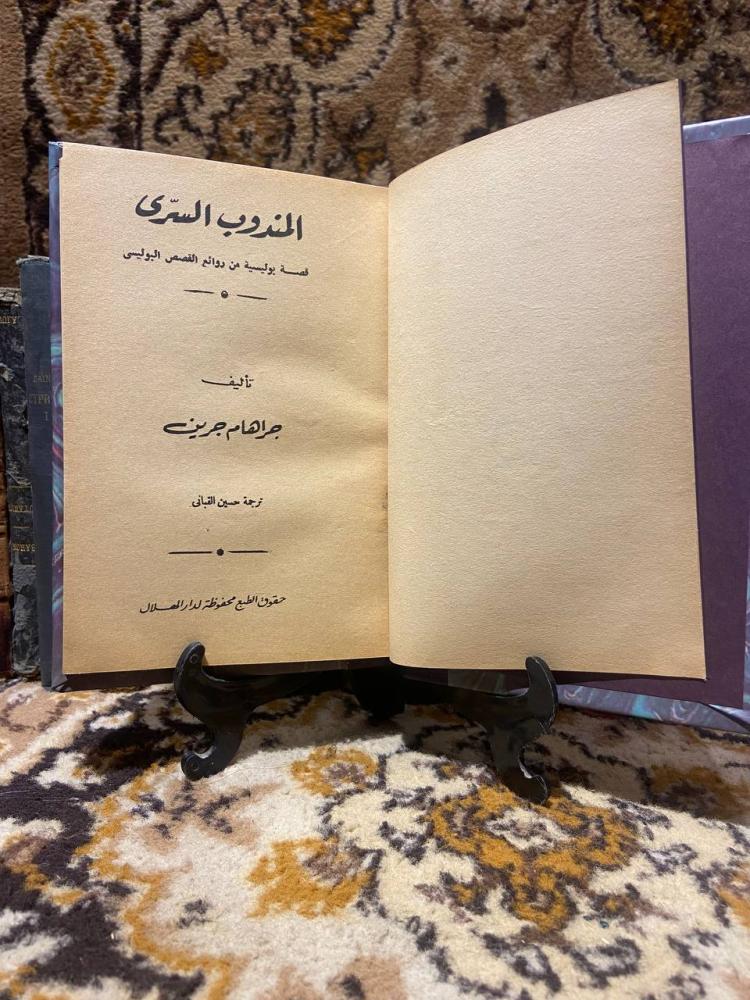 المندوب السّرى
قصة بوليسية من روائع القصص البوليسى
تأليف
جراهام جرين
ترجمة حسين القبانى
حقوق الطبع محفوظة لدار الهلال